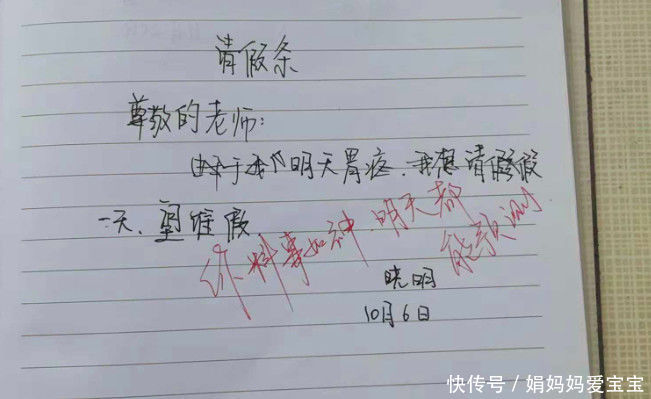 请假条
尊敬的老师:
由于我明天胃疼.我想请假
一天、望准假
你料事如神.明天都
能预测.
晓明
10月6日
快传号/娟妈妈爱宝宝